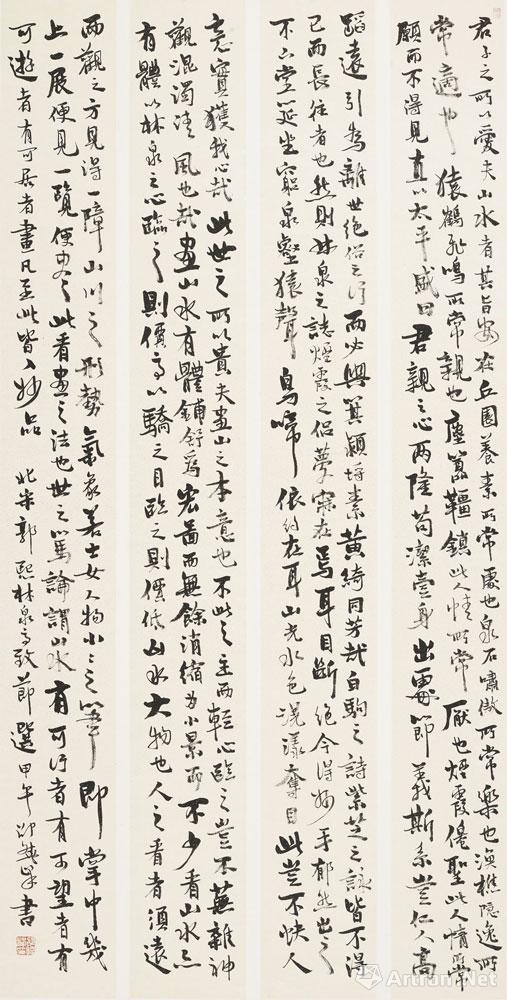 君子之所以愛夫山水者其旨安在丘園養素所常處也泉石嘯傲所常樂也漁樵隱逸所
常適也猿鶴飛鳴所常親也塵囂韁鎖此人情所常厭也煙霞僊聖此人情所常
願而不得見直以太平盛日君親之心兩隆苟潔壹身出處節義斯系豈仁人高
蹈遠引為離世絕俗之行而必與箕潁埒素黃綺同芳哉白駒之詩紫芝之詠皆不得
已而長往者也然則林泉之誌煙霞之侶夢寐在焉耳目斷絕今得妙手郁然出之
不下堂筵坐窮泉壑猿聲鳥啼依約在耳山光水色滉漾奪目此豈不快人
意實獲我心哉此世之所以貴夫畫山之本意也不此之主而輕心臨之豈不蕪雜神
觀溷濁清風也哉畫山水有體鋪舒爲宏圖而無餘消縮为小景而不少看山水亦
有體以林泉之心臨之則價高以驕之目臨之則價低山水大物也人之看者須遠
而觀之方見得一障山川之形勢氣象若士女人物小小之筆即掌中幾
上一展便見一覽便盡此看畫之法也世之篤論謂山水有可行者有可望者有
可遊者有可居者畫凡至此皆入妙品 北宋郭熙林泉高致節選 甲午 書